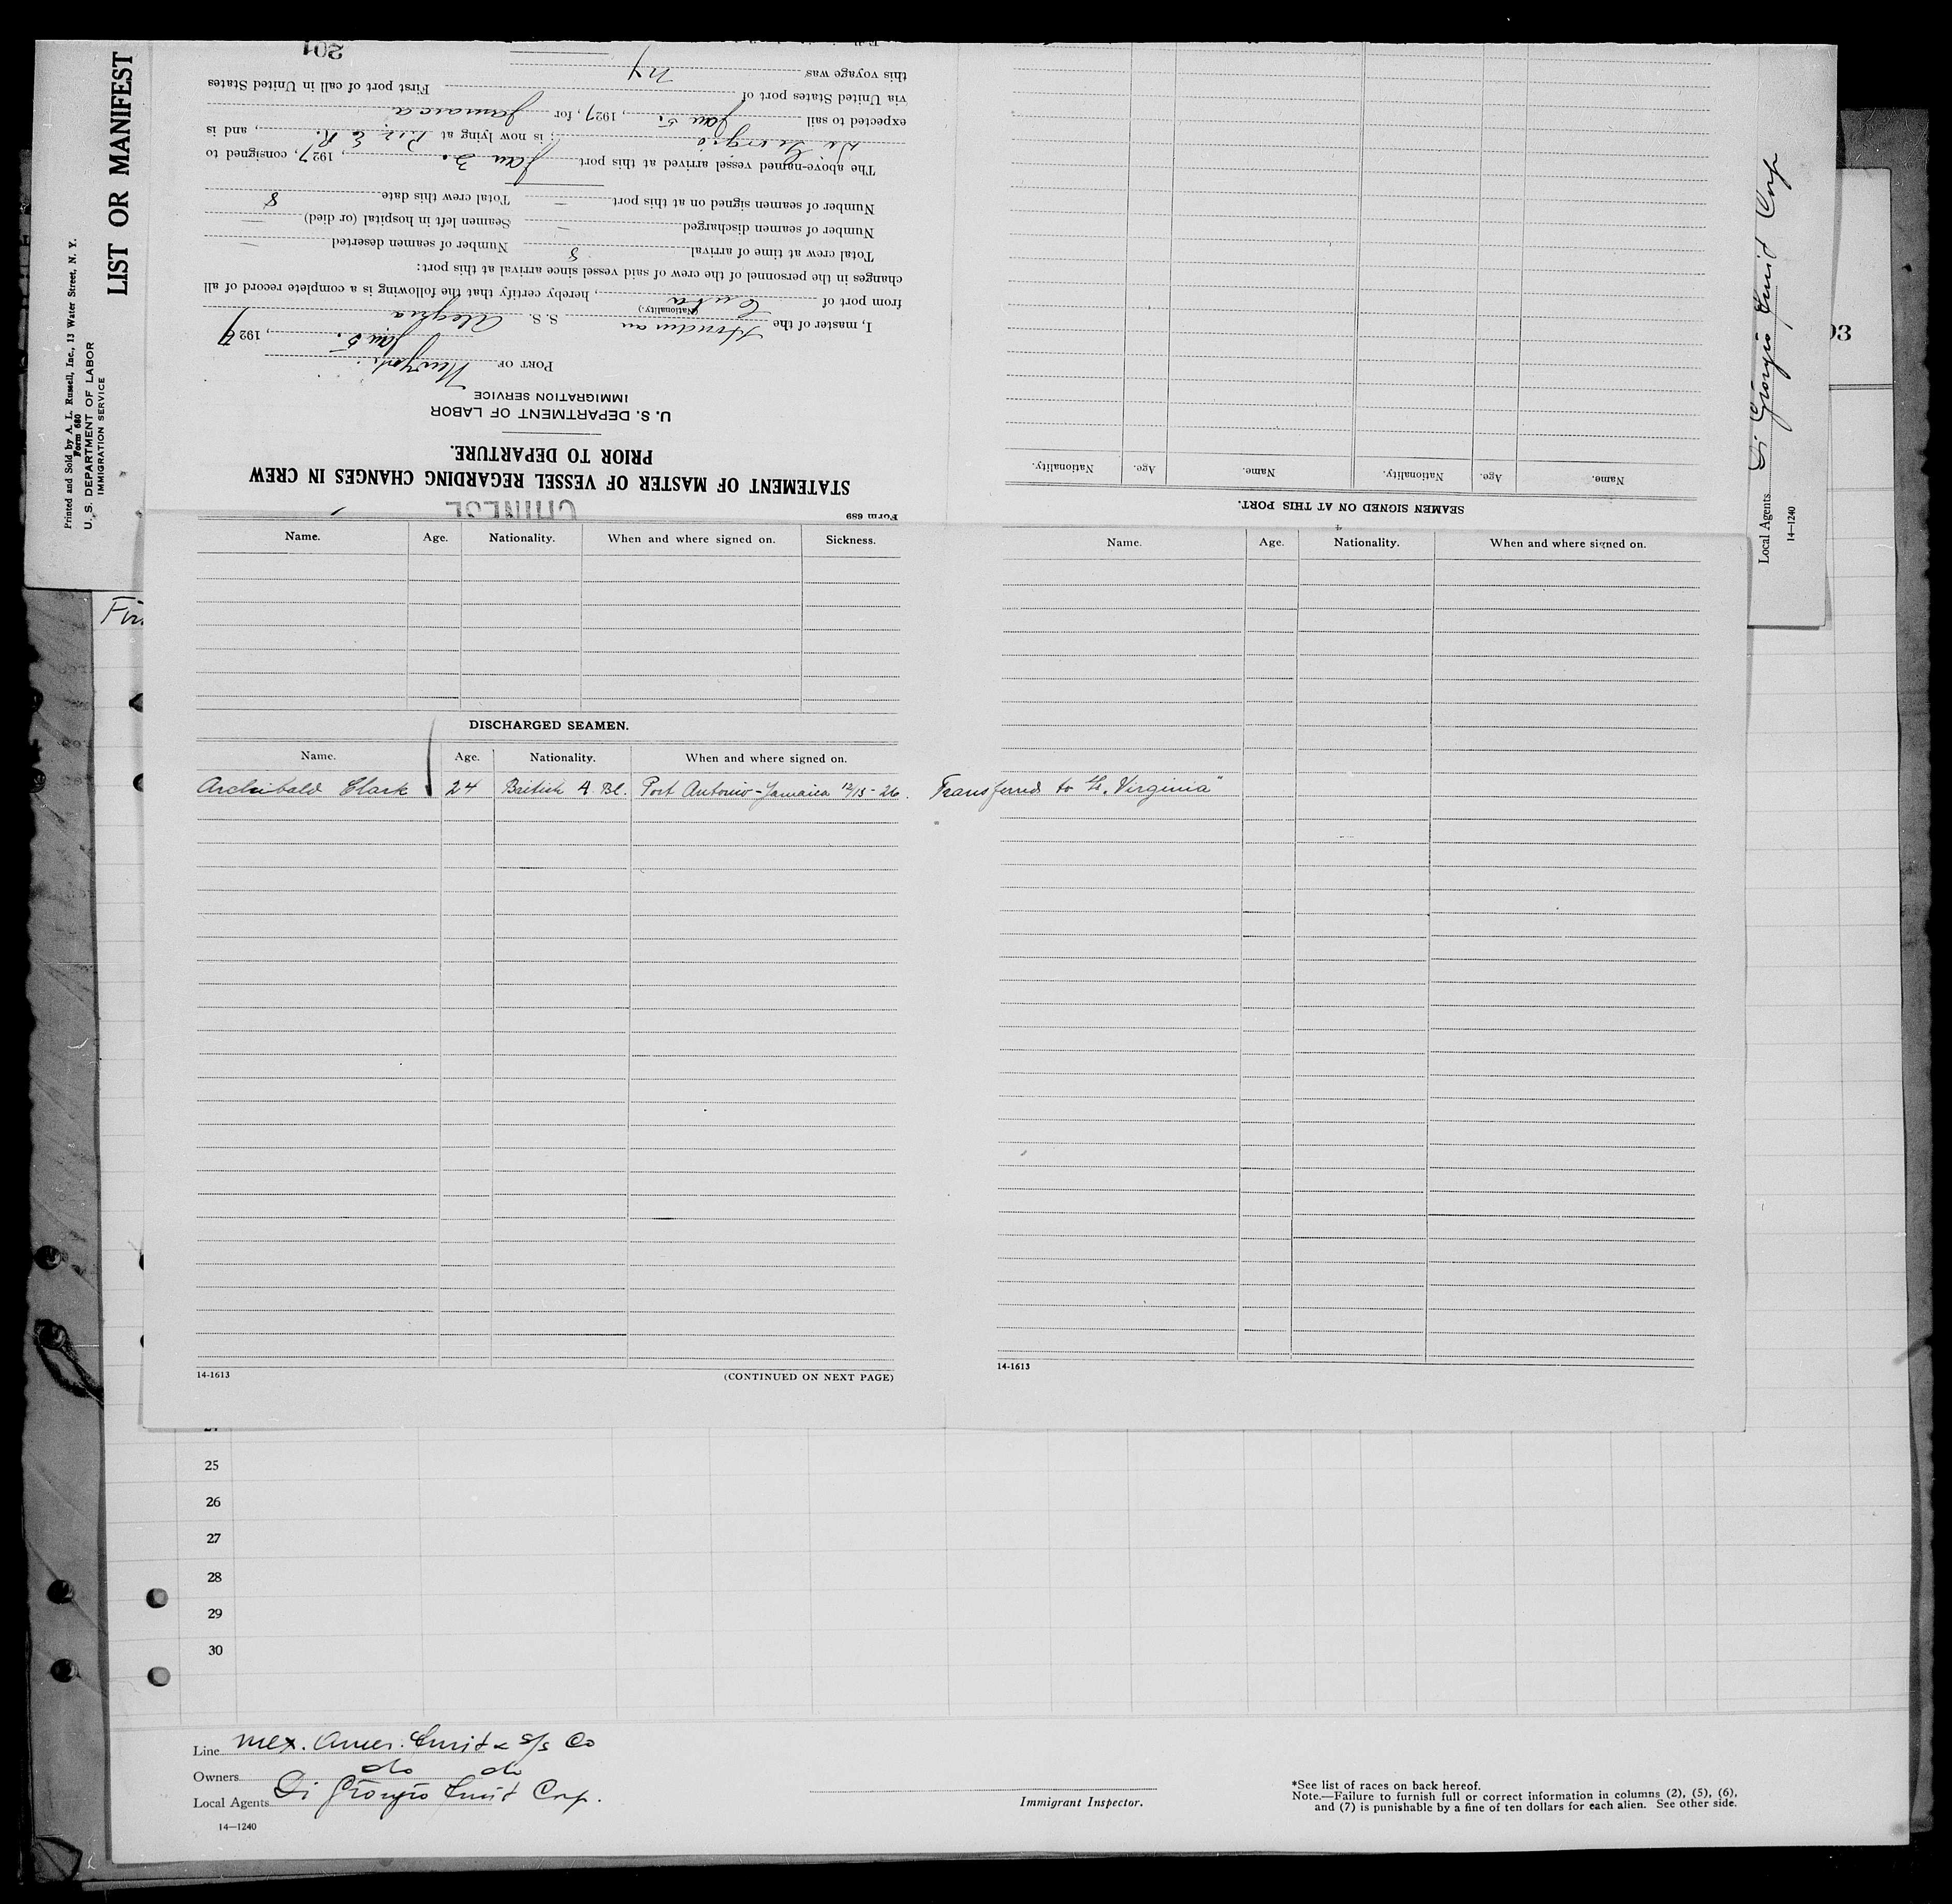 LIST OR MANIFEST
Printed and Sold by A. L. Russell, Inc., 13 Water Street, N. Y.
Form 680
U. S. DEPARTMENT OF LABOR
IMMIGRATION SERVICE
Form 689
CHINESE
STATEMENT OF MASTER OF VESSEL REGARDING CHANGES IN CREW
PRIOR TO DEPARTURE.
U. S. DEPARTMENT OF LABOR
IMMIGRATION SERVICE
PORT OF New York
Jan 5, 1927
I, master of the Honduran S. S. Alegria
(Nationality.)
from port of Cuba, hereby certify that the following is a complete record of all
changes in the personnel of the crew of said vessel since arrival at this port:
Total crew at time of arrival 8 Number of seamen deserted —
Number of seamen discharged — Seamen left in hospital (or died) —
Number of seamen signed on at this port — Total crew this date 8
The above-named vessel arrived at this port Jan 3, 1927, consigned to
Di Giorgio; is now lying at Pier 2 E. R., and is
expected to sail Jan 5, 1927, for Jamaica
via United States port of First port of call in United States
this voyage was NY
201
SEAMEN SIGNED ON AT THIS PORT.
Name. Age. Nationality. Name. Age. Nationality.
Local Agents Di Giorgio Fruit Corp
14—1240
93
Name. Age. Nationality. When and where signed on. Sickness.
Name. Age. Nationality. When and where signed on.
DISCHARGED SEAMEN.
Name. Age. Nationality. When and where signed on.
Archibald Clark 24 British A. Bl. Port Antonio - Jamaica 12/15-26. Transferred to Virginia"
14-1613
(CONTINUED ON NEXT PAGE)
14-1613
25
26
27
28
29
30
Line Mex. Amer. Fruit & S/s Co
Owners do do
Local Agents Di Giorgio Fruit Corp.
14—1240
Immigrant Inspector.
*See list of races on back hereof.
Note.—Failure to furnish full or correct information in columns (2), (5), (6),
and (7) is punishable by a fine of ten dollars for each alien. See other side.